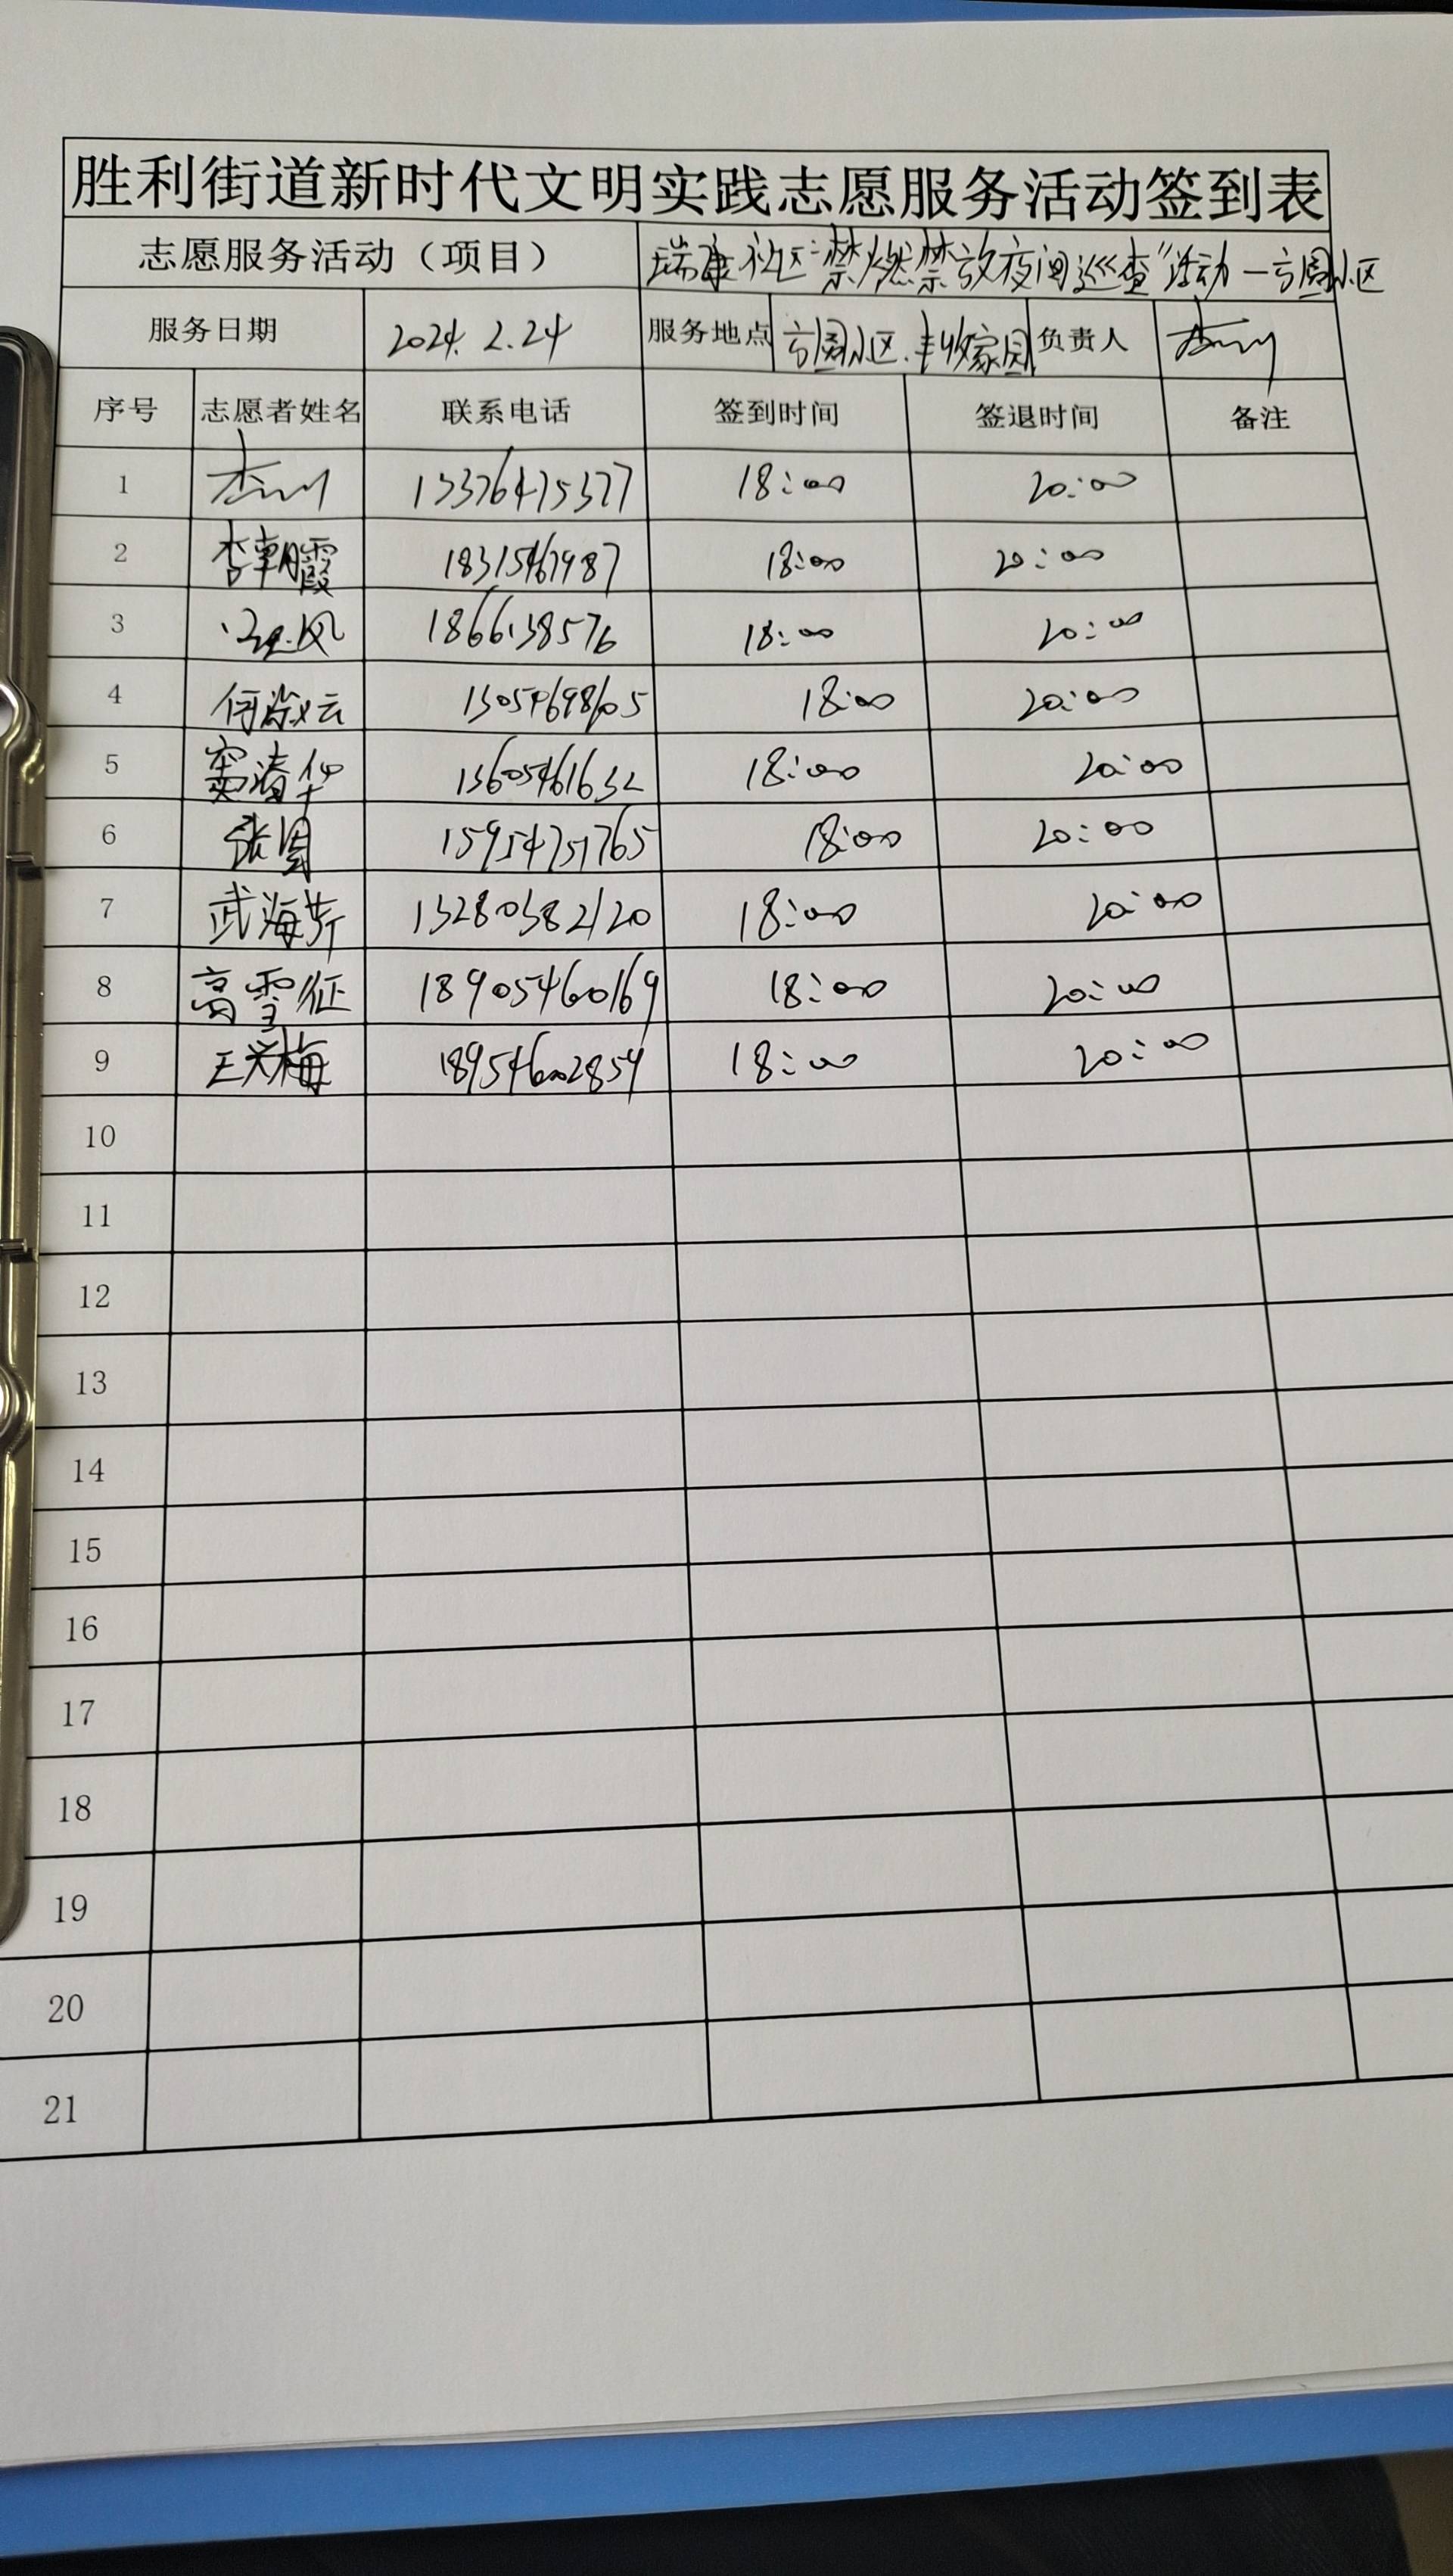 胜利街道新时代文明实践志愿服务活动签到表
志愿服务活动（项目） 瑞康社区“禁燃禁放夜间巡查”活动—方圆小区
服务日期 2024.2.24 服务地点 方圆小区.丰收家园 负责人
序号 志愿者姓名 联系电话 签到时间 签退时间 备注
1 13376475377 18:00 20:00
2 李朝霞 18315467987 18:00 20:00
3 18:00 20:00
4 18:00 20:00
5 窦清华 13605461632 18:00 20:00
6 15954751765 18:00 20:00
7 武海芳 13280382120 18:00 20:00
8 高雪征 18905460169 18:00 20:00
9 王兴梅 18:00 20:00
10
11
12
13
14
15
16
17
18
19
20
21